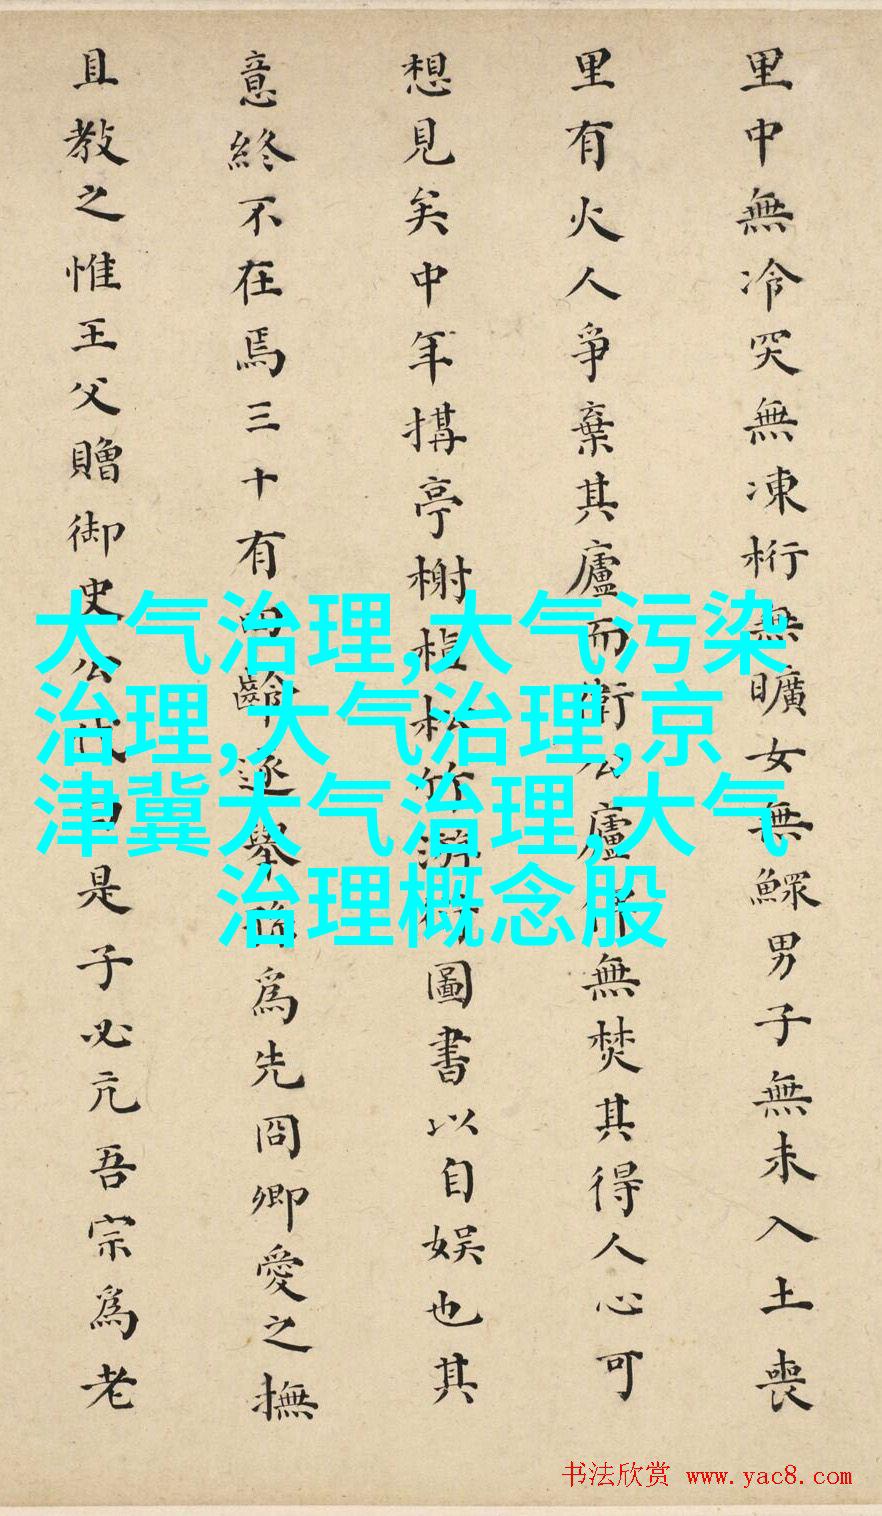 里中無冷突無凍桁無曠女無鰥男子無未入土喪
里有火人爭棄其廬而衛公廬所無焚其得人心可
想見矣中年搆亭榭植松竹游圖書以自娛也其
意終不在焉三十有四齡逐舉孫為先冏卿愛之撫
且教之惟王父贈御史公是子必亢吾宗為老
大气治理,大气污染
治理,大气治理,京
津冀大气治理,大气
治理概念股
书法欣赏 www.yac8.com